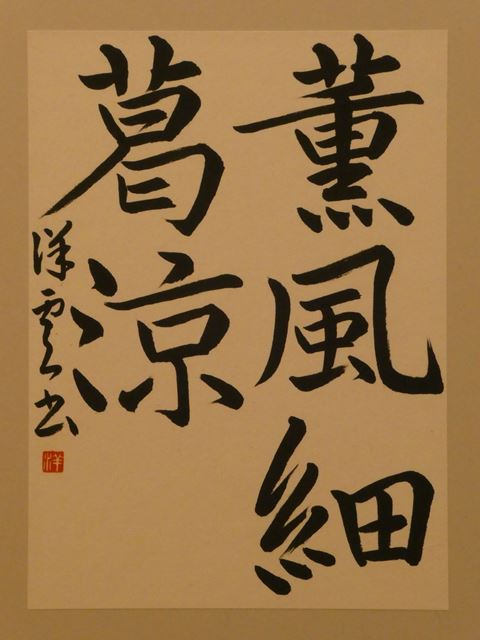 薫風細
葛涼
洋雲書
洋